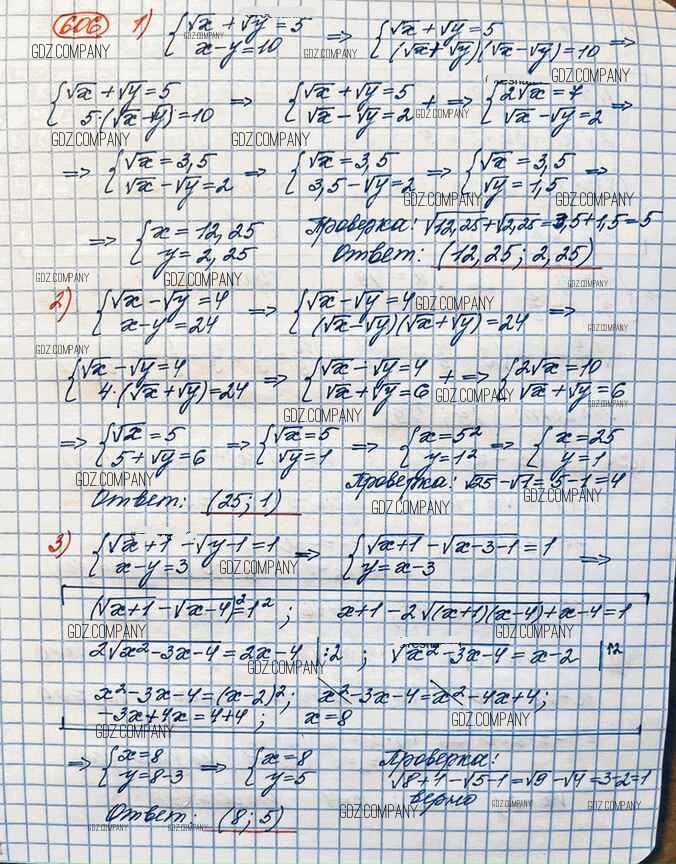 606 1) {√x + √y = 5 ; x - y = 10 ⇒ {√x + √y = 5 ; (√x + √y)(√x - √y) = 10 ⇒
{√x + √y = 5 ; 5·(√x - √y) = 10 ⇒ {√x + √y = 5 ; √x - √y = 2 + ⇒ {2√x = 7 ; √x - √y = 2 ⇒
⇒ {√x = 3,5 ; √x - √y = 2 ⇒ {√x = 3,5 ; 3,5 - √y = 2 ⇒ {√x = 3,5 ; √y = 1,5 ⇒
⇒ {x = 12,25 ; y = 2,25 Проверка: √12,25 + √2,25 = 3,5 + 1,5 = 5
Ответ: (12,25; 2,25)
2) {√x - √y = 4 ; x - y = 24 ⇒ {√x - √y = 4 ; (√x - √y)(√x + √y) = 24 ⇒
{√x - √y = 4 ; 4·(√x + √y) = 24 ⇒ {√x - √y = 4 ; √x + √y = 6 + ⇒ {2√x = 10 ; √x + √y = 6
⇒ {√x = 5 ; 5 + √y = 6 ⇒ {√x = 5 ; √y = 1 ⇒ {x = 5² ; y = 1² ⇒ {x = 25 ; y = 1
Проверка: √25 - √1 = 5 - 1 = 4
Ответ: (25; 1)
3) {√x+1 - √y-1 = 1 ; x - y = 3 ⇒ {√x+1 - √x-3-1 = 1 ; y = x - 3 ⇒
(√x+1 - √x-4)² = 1² ; x+1 - 2√(x+1)(x-4) + x - 4 = 1
2√x²-3x-4 = 2x - 4 | :2 ; √x²-3x-4 = x - 2 |↑2
x² - 3x - 4 = (x-2)² ; x² - 3x - 4 = x² - 4x + 4 ;
-3x + 4x = 4 + 4 ; x = 8
⇒ {x = 8 ; y = 8 - 3 ⇒ {x = 8 ; y = 5 Проверка:
√8+1 - √5-1 = √9 - √4 = 3 - 2 = 1
верно
Ответ: (8; 5)
GDZ.COMPANY